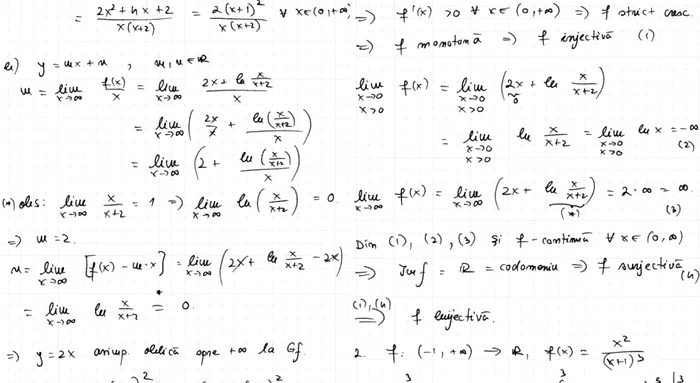 = (2x² + 4x + 2) / (x(x+2)) = 2(x+1)² / (x(x+2)) ∀ x∈(0,+∞)
y = mx + n , m, n ∈ ℝ
m = lim_{x→∞} f(x)/x = lim_{x→∞} (2x + ln x/(x+2)) / x
= lim_{x→∞} (2x/x + ln(x/(x+2)) / x)
= lim_{x→∞} (2 + ln(x/(x+2)) / x)
(*) obs: lim_{x→∞} x/(x+2) = 1 => lim_{x→∞} ln(x/(x+2)) = 0.
=> m = 2.
n = lim_{x→∞} [f(x) - m·x] = lim_{x→∞} (2x + ln x/(x+2) - 2x)
= lim_{x→∞} ln x/(x+2) =* 0.
=> y = 2x asimp. oblică spre +∞ la Gf.
=> f'(x) > 0 ∀ x∈(0,+∞) => f strict cresc.
=> f monotonă => f injectivă (1)
lim_{x→0, x>0} f(x) = lim_{x→0, x>0} (2x + ln x/(x+2))
0
= lim_{x→0, x>0} ln x/(x+2) = lim_{x→0, x>0} ln x = -∞ (2)
lim_{x→∞} f(x) = lim_{x→∞} (2x + ln x/(x+2)) = 2·∞ = ∞. (3)
(*)
Din (1), (2), (3) și f-continuă ∀ x∈(0,∞)
=> Im f = ℝ = codomeniu => f surjectivă (4)
(1),(4) => f bijectivă.
2. f: (-1, +∞) → ℝ, f(x) = x² / (x+1)³